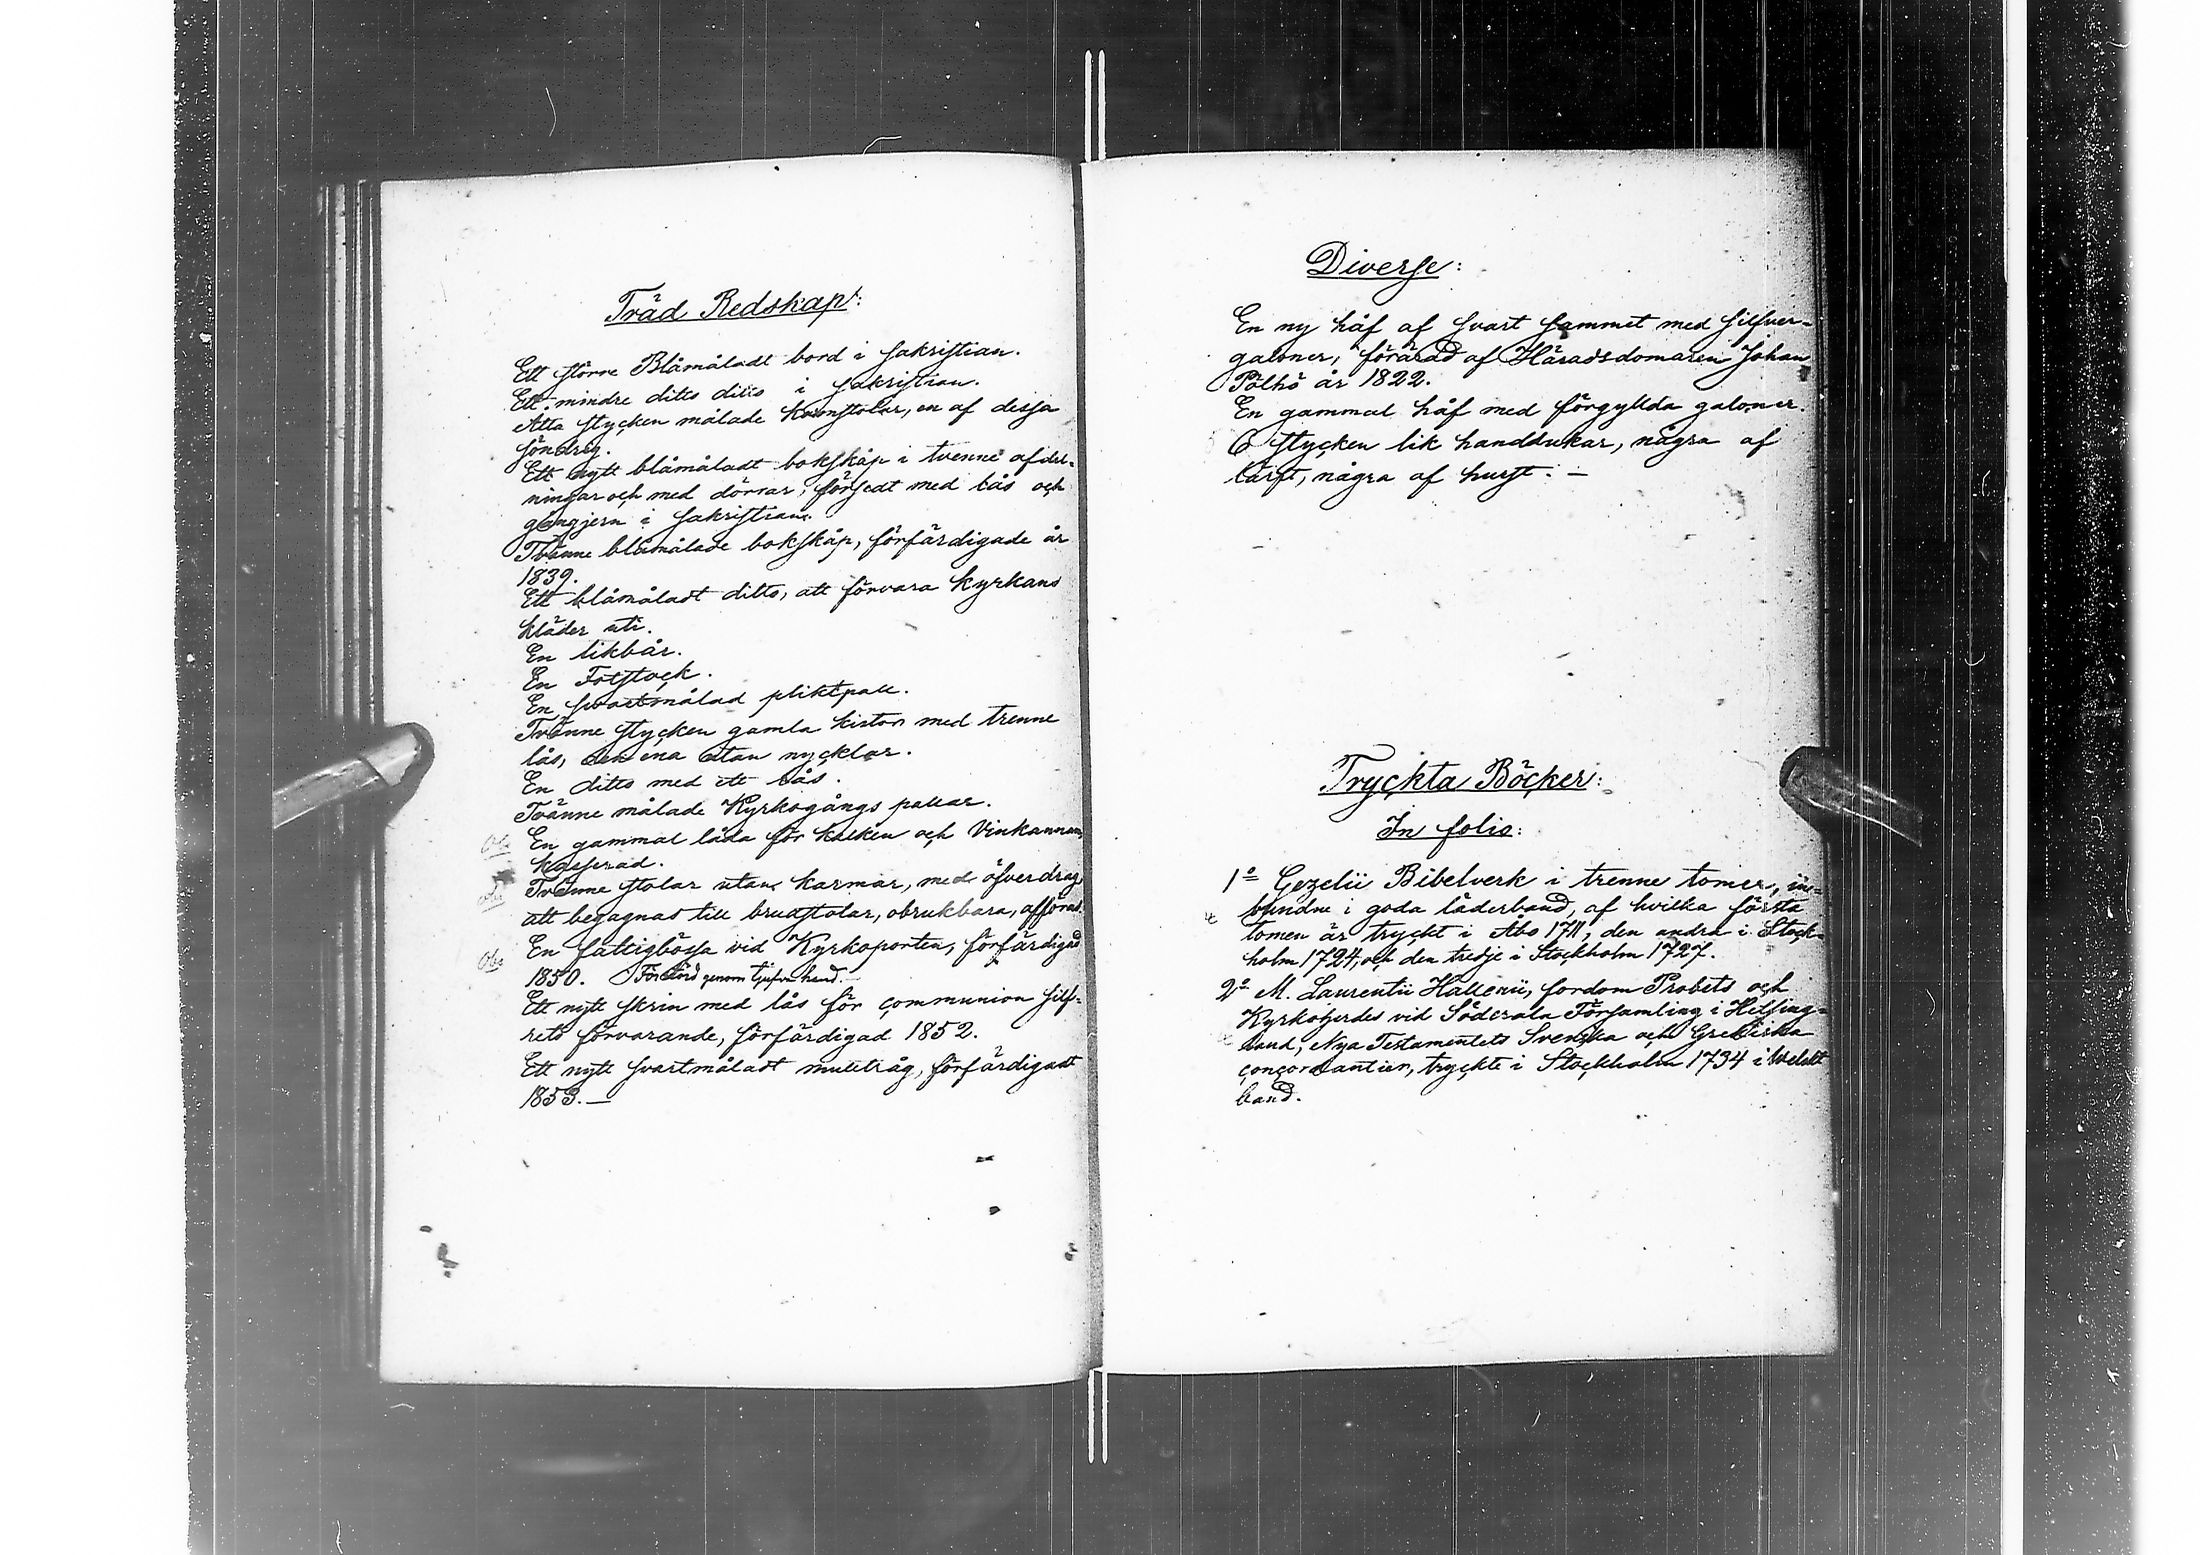 Träd Redskap:
Ett större Blåmåladt bord i sakristian.
Ett mindre ditto ditto i sakristian.
Åtta stycken målade karmstolar, en af dessa
söndrig.
Ett nytt blåmåladt bokskåp i tvenne afdel-
ningar och med dörrar, försedt med lås och
gångjern i sakristian.
Tvänne blåmålade bokskåp, förfärdigade år
1839.
Ett blåmåladt ditto, att förvara kyrkans
kläder uti.
En likbår.
En Fotstock.
En svartmålad pliktpall.
Tvänne stycken gamla kistor med trenne
lås, den ena utan nycklar.
En ditto med ett lås.
Tvänne målade Kyrkogångs pallar.
Obs En gammal låda för kalken och Vinkannan,
kasserad.
Obs Tvänne stolar utan karmar, med öfverdrag
att begagnas till brudstolar, obrukbara, afföras.
Obs En fattigbössa vid Kyrkoporten, förfärdigad
1850. Förstörd genom tjufva hand.
Ett nytt skrin med lås för communion silf-
rets förvarande, förfärdigad 1852.
Ett nytt svartmåladt multtråg, förfärdigadt
1853. —
Diverse:
En ny håf af svart sammet med silfver-
galoner, förärad af Häradsdomaren Johan
Pölhö år 1822.
En gammal håf med förgyllda galoner.
6 stycken lik handdukar, några af
lärft, några af hurst. —
Tryckta Böcker:
In folio:
1o Gezelii Bibelverk i trenne tomer, in-
bundne i goda läderband, af hvilka första
tomen är tryckt i Åbo 1711, den andra i Stock-
holm 1724, och den tredje i Stockholm 1727.
2o M. Laurentii Hallenii, fordom Probsts och
Kyrkoherdes vid Söderala Församling i Helsing-
land, Nya Testamentets Svenska och Grekiska
concordantier, tryckte i Stockholm 1734 i welskt
band.